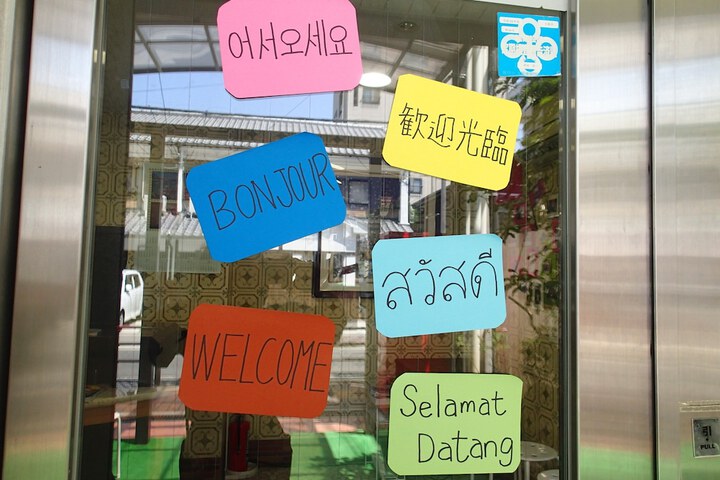 어서오세요
歡迎光臨
BONJOUR
สวัสดี
WELCOME
Selamat
Datang
PULL